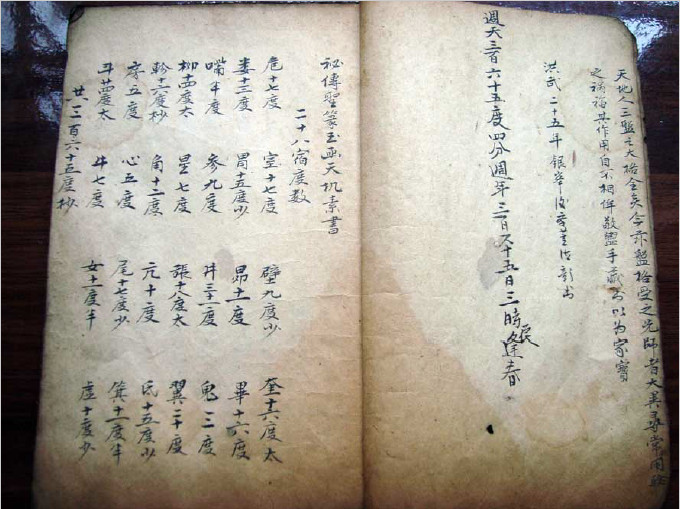 天地人三盤之大格全矣今示盤格受之先師者大異尋常用驗
之禍福與作用自不相侔敬盥手書以为家寳
洪武二十五年銀峯後
週天三百六十五度四分週年三百六十五日三時民逢春
秘傳聖篆玉函天机素書
二十八宿度数
危十七度 室十七度 壁九度少 奎十六度太
娄十三度 胃十五度少 昴十一度 畢十六度
嘴半度 参九度 井三十一度 鬼二度
柳十四度太 星七度 張十八度太 翼二十度
軫十六度杪 角十二度 亢十度 氐十五度少
房五度 心五度 尾十七度少 箕十一度半
斗廿四度太 牛七度 女十一度半 虚十度少
共三百六十五度杪